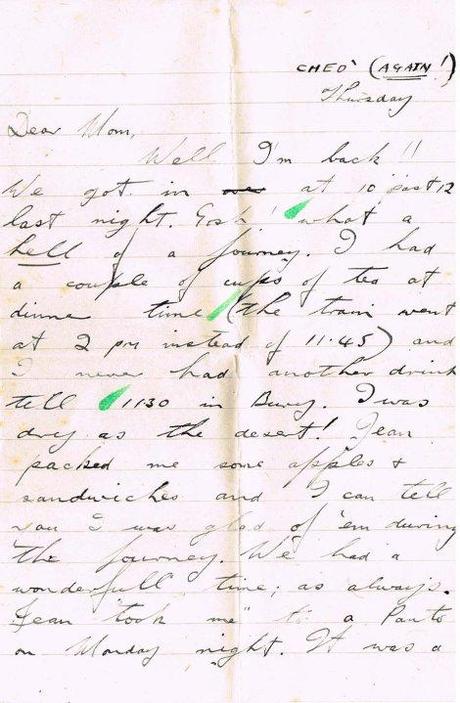 CHED' (AGAIN!)
Thursday
Dear Mom,
Well I'm back!!
We got in at 10 past 12
last night. Gosh! what a
hell of a journey. I had
a couple of cups of tea at
dinner time (the train went
at 2 pm instead of 11.45) and
I never had another drink
till 1130 in Bury. I was
dry as the desert! Jean
packed me some apples &
sandwiches and I can tell
you I was glad of 'em during
the journey. We had a
wonderfull time; as always.
Jean "took me" to a Panto
on Monday night. It was a